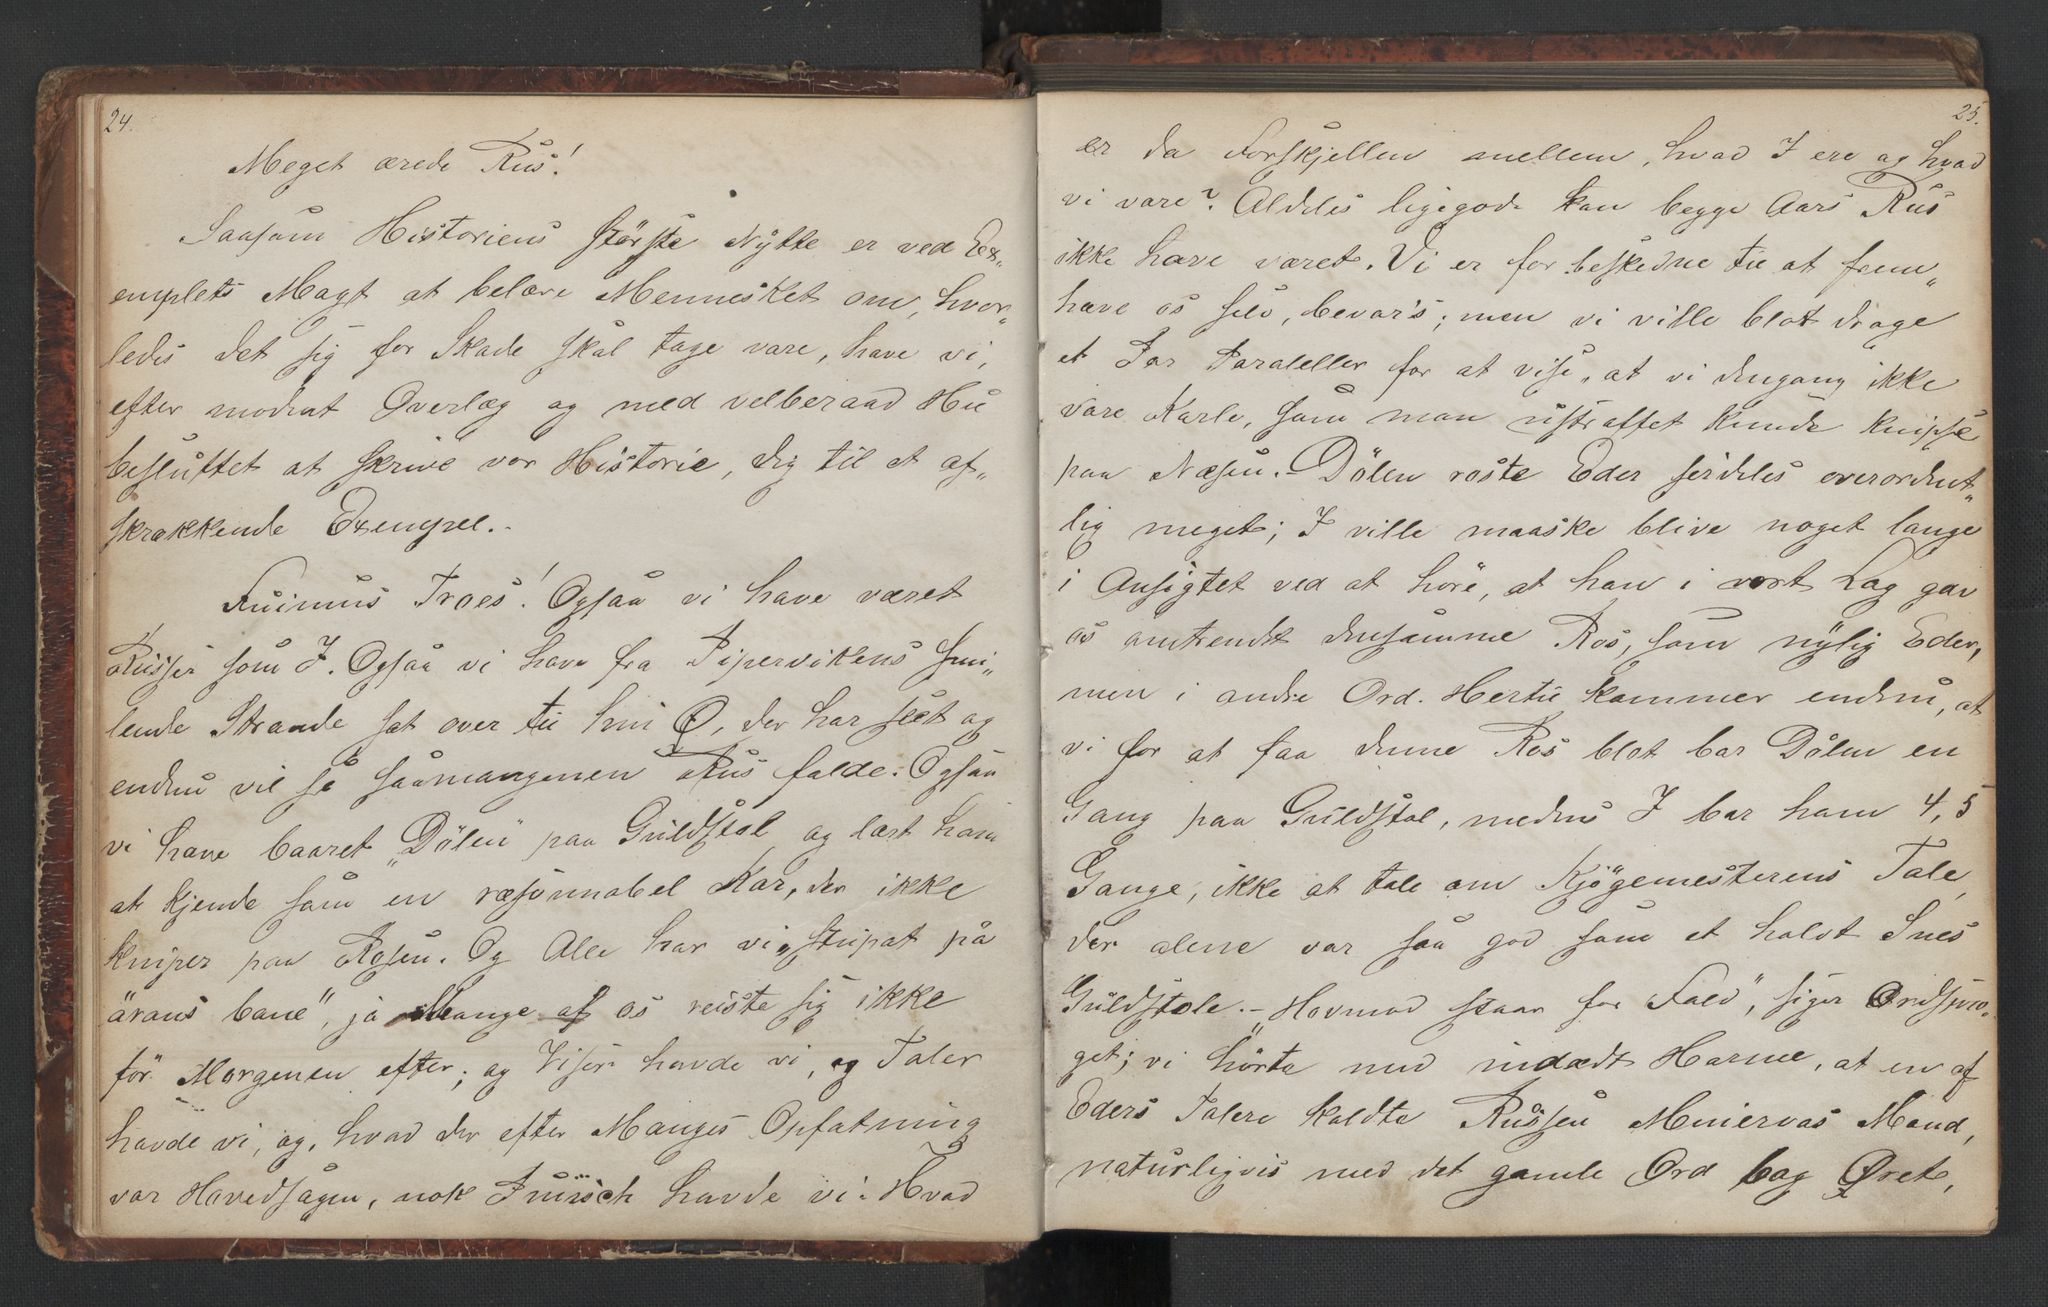 24.
Meget ærede Rus!
Saasom Historiens störste Nytte er ved Ex„
emplets Magt at belære Mennesket om, hvor„
ledes det sig for Skade skal tage vare, have vi,
efter modent Overlæg og med velberaad Hu
besluttet at skrive vor Historie, dig til et af„
skrækkende Exempel.-
Fuimus Troes! Ogsaa vi have været
Russer som I. Ogsaa vi have fra Piperviken's smi„
lende Strande sat over til hin Ø, der har seet og
endnu vil se saamangenen Rus falde. Ogsaa
vi have baaret „Dölen" paa Guldstol og lært ham
at kjende som en ræsonnabel Kar, der ikke
kniper paa Rosen. Og Alle har vi „stupat på
ärans bane", ja Mange af os reiste sig ikke
för Morgenen efter; og Viser havde vi, og Taler
havde vi, og, hvad der efter Manges Opfatning
var Hovedsagen, nok Punsch havde vi. Hvad
25.
er da Forskjellen mellem, hvad I ere og hvad
vi vare? Aldeles ligegode kan begge Aars Rus
ikke have været. Vi er for beskedne til at frem„
hæve os selv, bevar's; men vi ville blot drage
et Par Paraleller for at vise, at vi dengang ikke
vare Karle, som man ustraffet kunde knipse
paa Næsen.- Dölen roste Eder serdeles overordent„
lig meget; I ville maaske blive noget lange
i Ansigtet ved at höre, at han i vort Lag gav
os omtrendt densamme Ros, som nylig Eder,
men i andre Ord. Hertil kommer endnu, at
vi for at faa denne Ros blot bar Dölen en
Gang paa Guldstol, medens I bar ham 4, 5
Gange, ikke at tale om Kjögemesterens Tale,
der alene var saa god som et halvt Snes
Guldstole.- „Hovmod staar for Fald", siger Ordspro„
get; vi hörte med indædt Harme, at en af
Eders Talere kaldte Russen Minervas Mand,
naturligvis med det gamle Ord bag Øret,